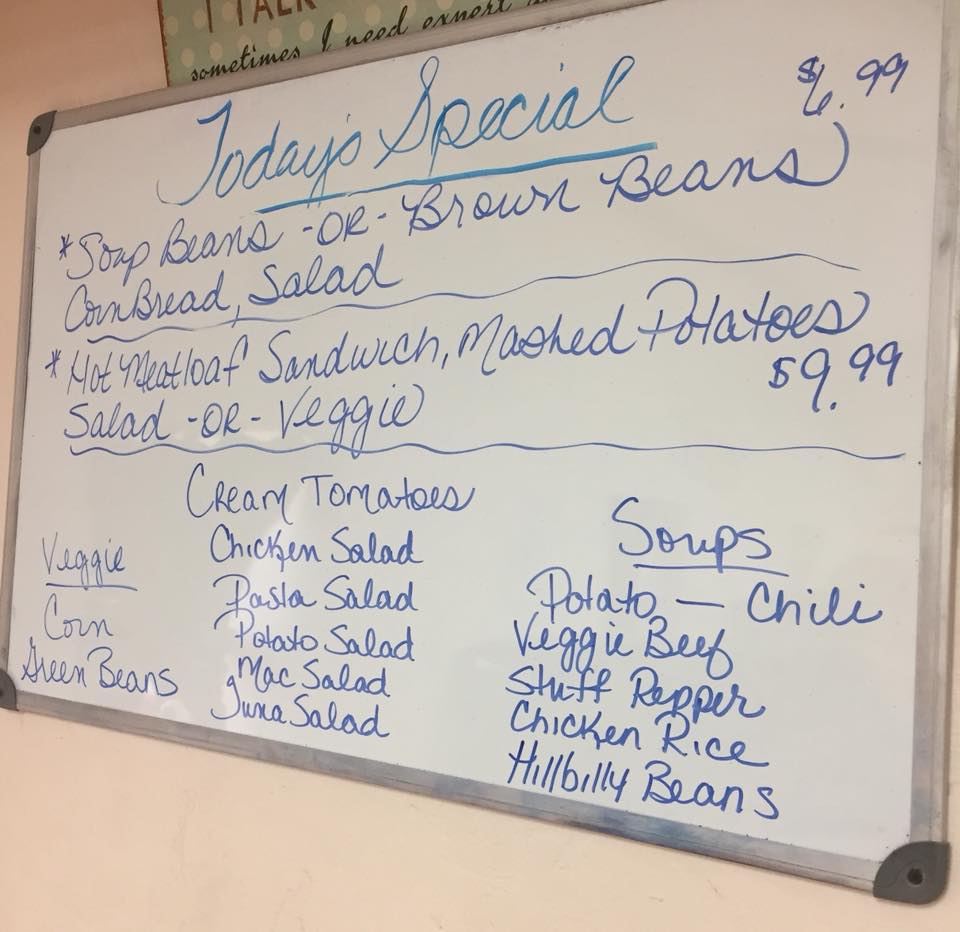 I TALK
sometimes I need expert
Today's Special
$6.99
*Soup Beans -OR- Brown Beans
CornBread, Salad
*Hot Meatloaf Sandwich, Mashed Potatoes
$9.99
Salad -OR- Veggie
Cream Tomatoes
Chicken Salad
Pasta Salad
Potato Salad
Mac Salad
Tuna Salad
Veggie
Corn
Green Beans
Soups
Potato — Chili
Veggie Beef
Stuff Pepper
Chicken Rice
Hillbilly Beans